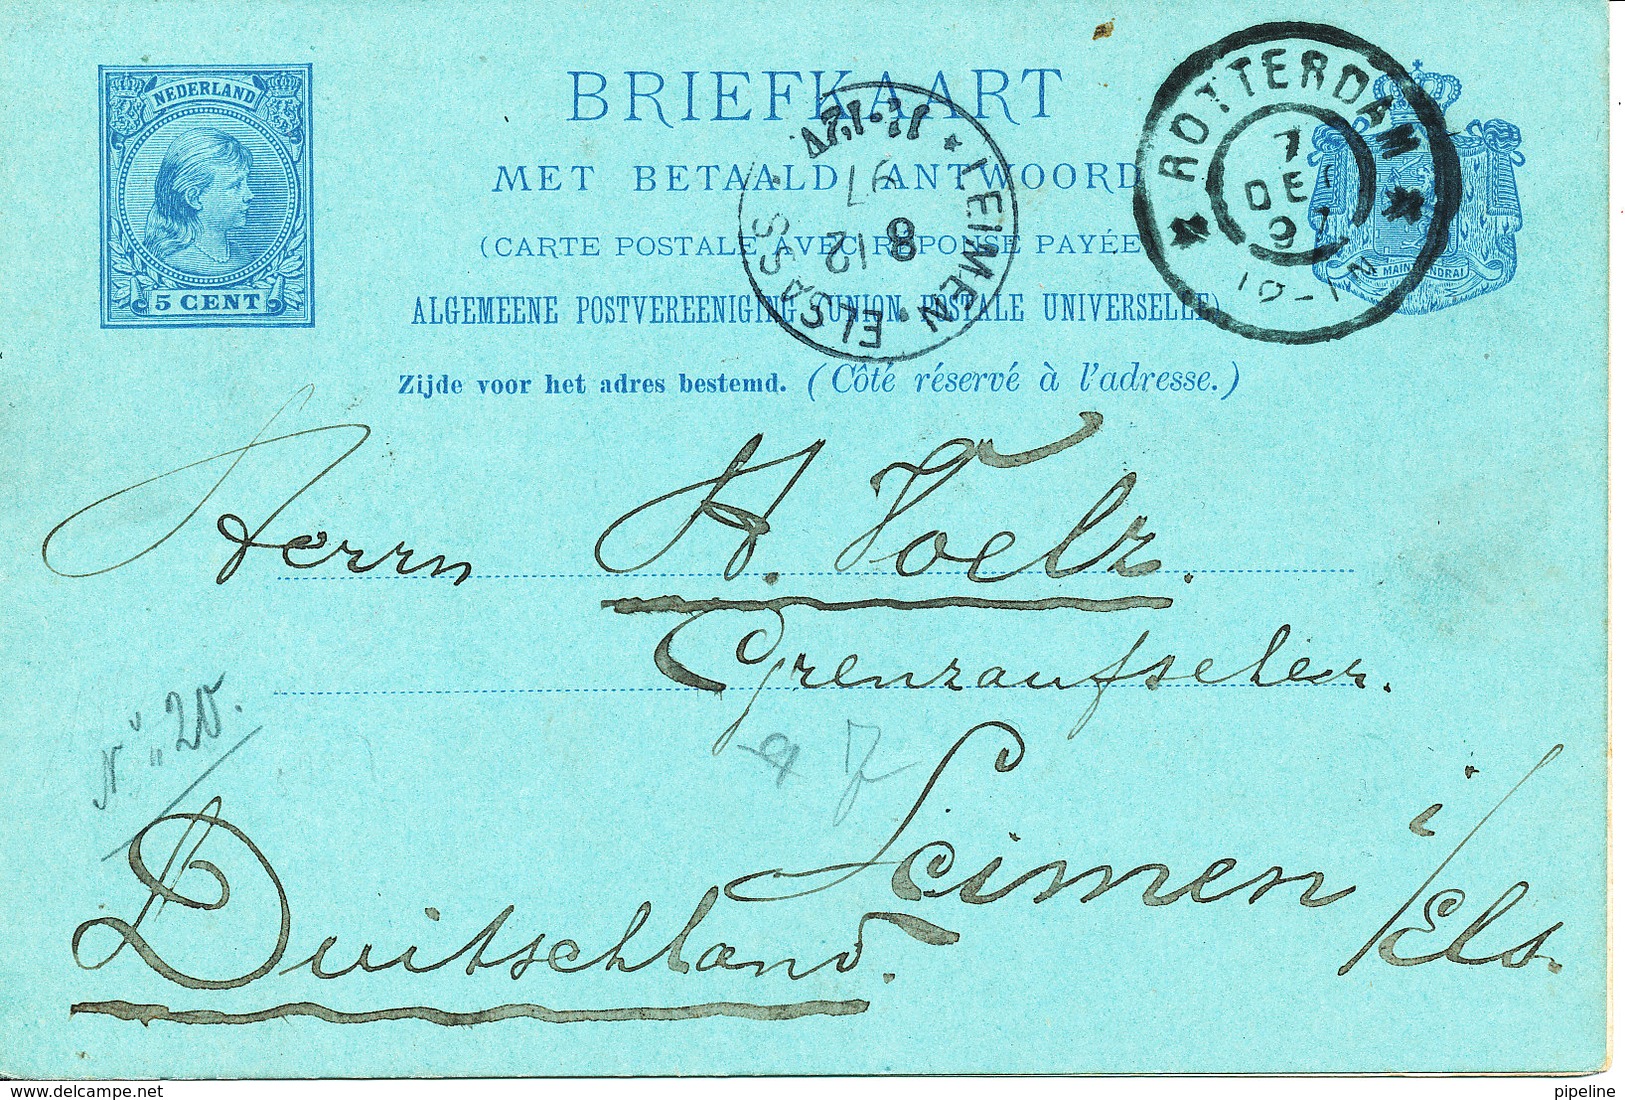 NEDERLAND
5 CENT
BRIEFKAART
MET BETAALD ANTWOORD
(CARTE POSTALE AVEC RÉPONSE PAYÉE)
ALGEMEENE POSTVEREENIGING (UNION POSTALE UNIVERSELLE)
Zijde voor het adres bestemd. (Côté réservé à l'adresse.)
ROTTERDAM
7
DEC
97
LEIMEN. ELSASS.
8 12
97
JE MAINTIENDRAI
Herrn H. Voelz.
Grenzaufseher.
Leimen i/Els.
Duitschland.
20.
delcampe.net
pipeline